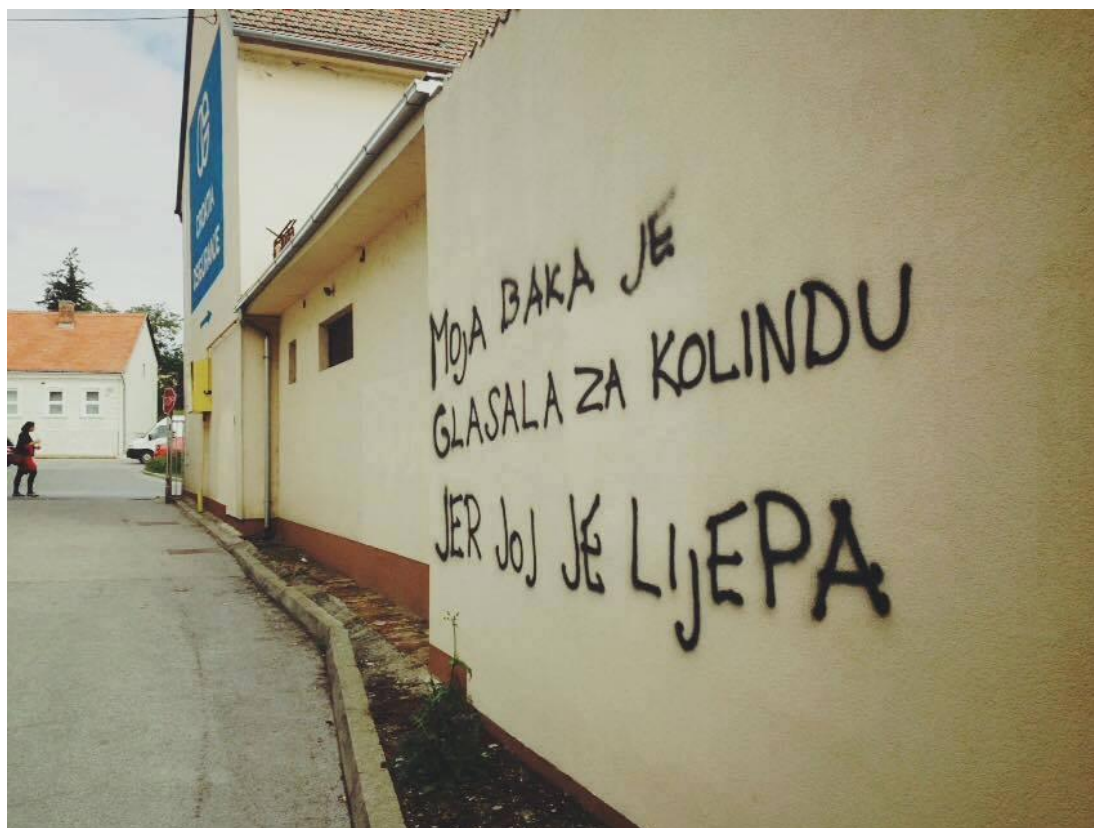 CROATIA
OSIGURANJE
MOjA BAKA JE
GLASALA ZA KOLINDU
JER JOJ JE LIjEPA